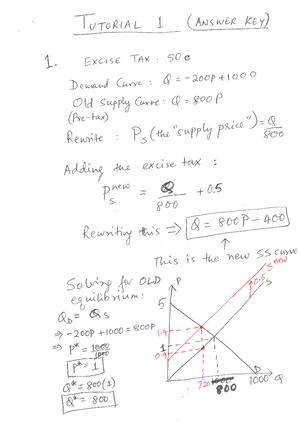 TUTORIAL 1 (ANSWER KEY)
1. EXCISE TAX : 50¢
Demand Curve : Q = -200P + 1000
Old Supply Curve : Q = 800P
(Pre-tax)
Rewrite : Ps (the "supply price") = Q/800
Adding the excise tax :
Ps new = Q/800 + 0.5
Rewriting this => Q = 800P - 400
↑
This is the new SS curve
Solving for OLD
equilibrium:
QD = Qs
=> -200P + 1000 = 800P
=> P* = 1000/1000
P* = 1
Q* = 800(1)
Q* = 800
P
S new
S
0.5
5
1.4
1
0.9
720
800
1000 Q
D